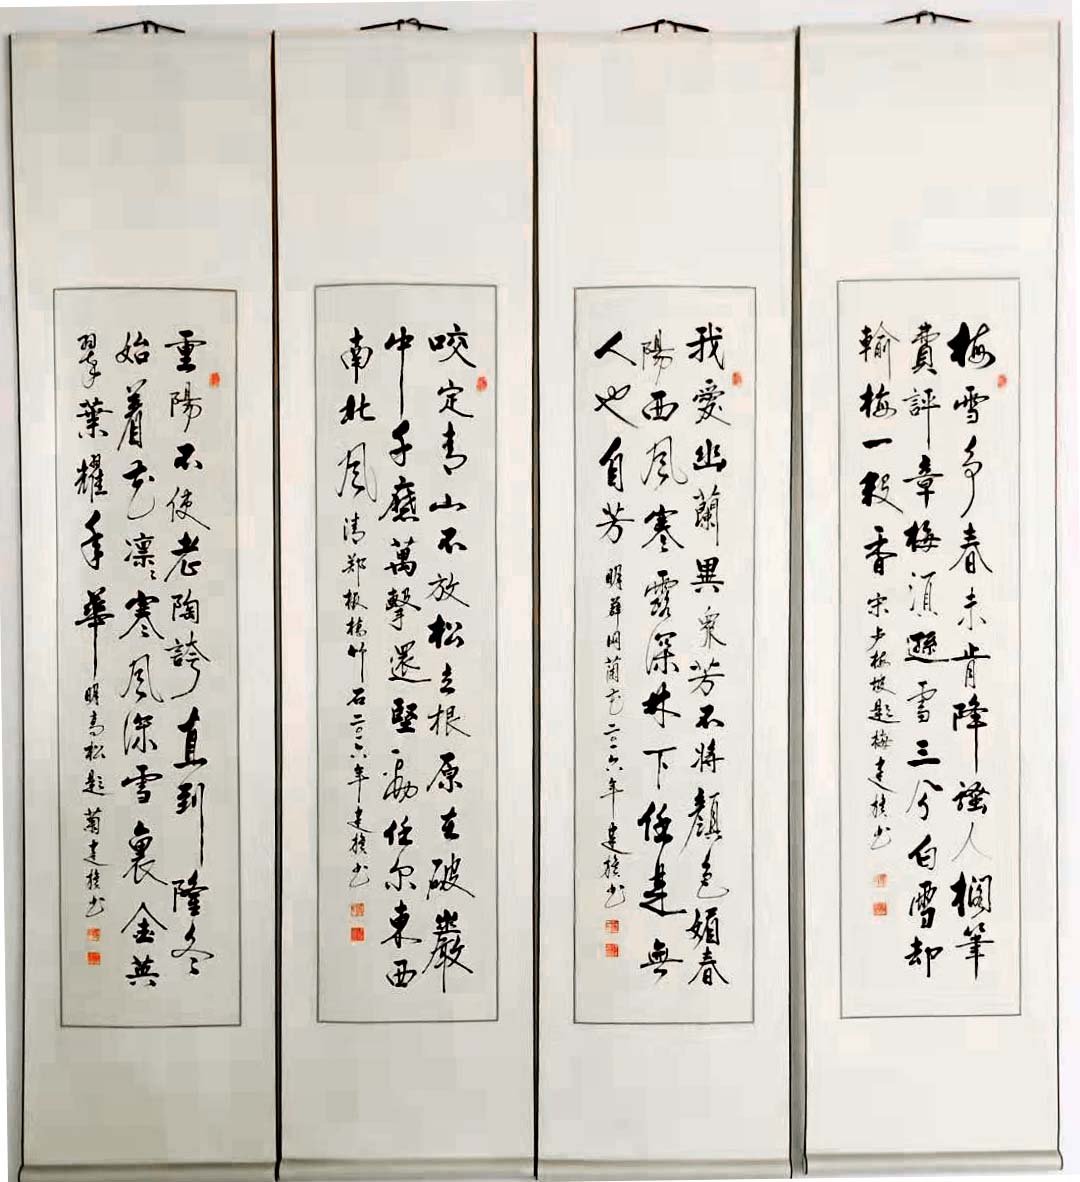 梅雪争春未肯降骚人擱筆
費評章梅須遜雪三分白雪却
輸梅一段香 宋卢梅坡题梅 建书
我愛幽蘭異衆芳不将顏色媚春
陽西風寒露深林下任是無
人也自芳 明薛网蘭花二〇一六年 建书
咬定青山不放松立根原在破巖
中千磨萬擊還堅勁任尔東西
南北風 清郑板橋竹石二〇一六年 建书
重陽不使老陶誇直到隆冬
始着花凛〻寒風深雪裏金英
翠葉耀年華 明高松题菊 建书